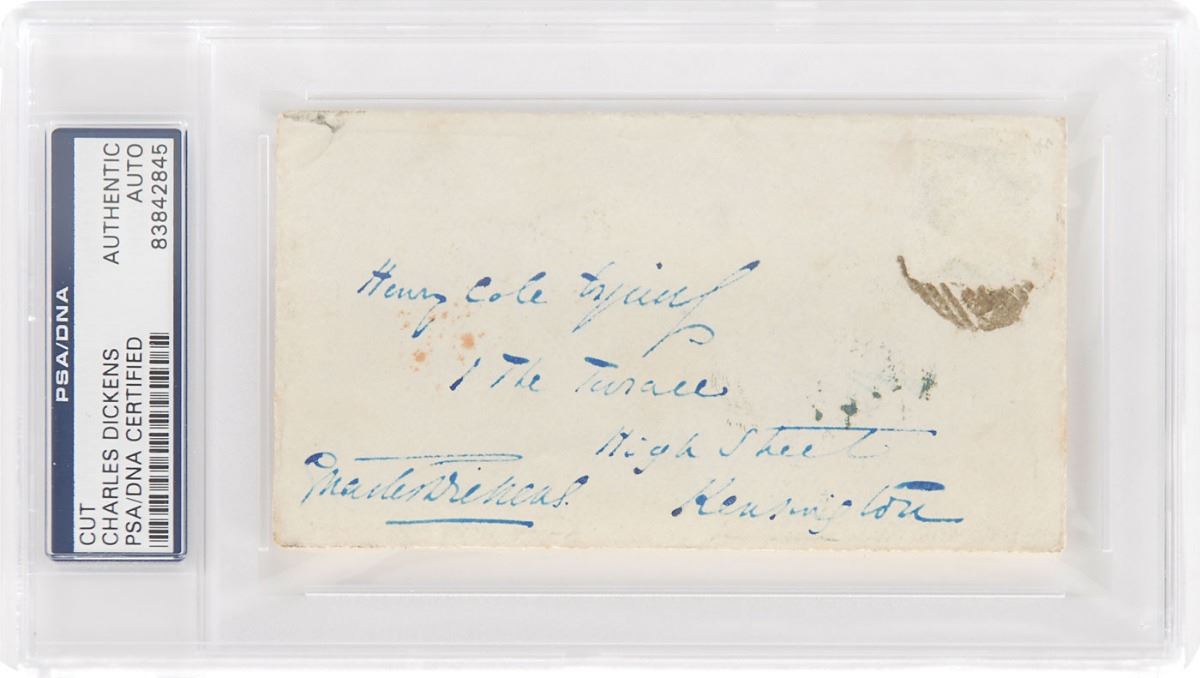 PSA/DNA
CUT
CHARLES DICKENS
PSA/DNA CERTIFIED
AUTHENTIC
AUTO
83842845
Henry Cole Esquire
1 The Terrace
High Street
Kensington
Charles Dickens